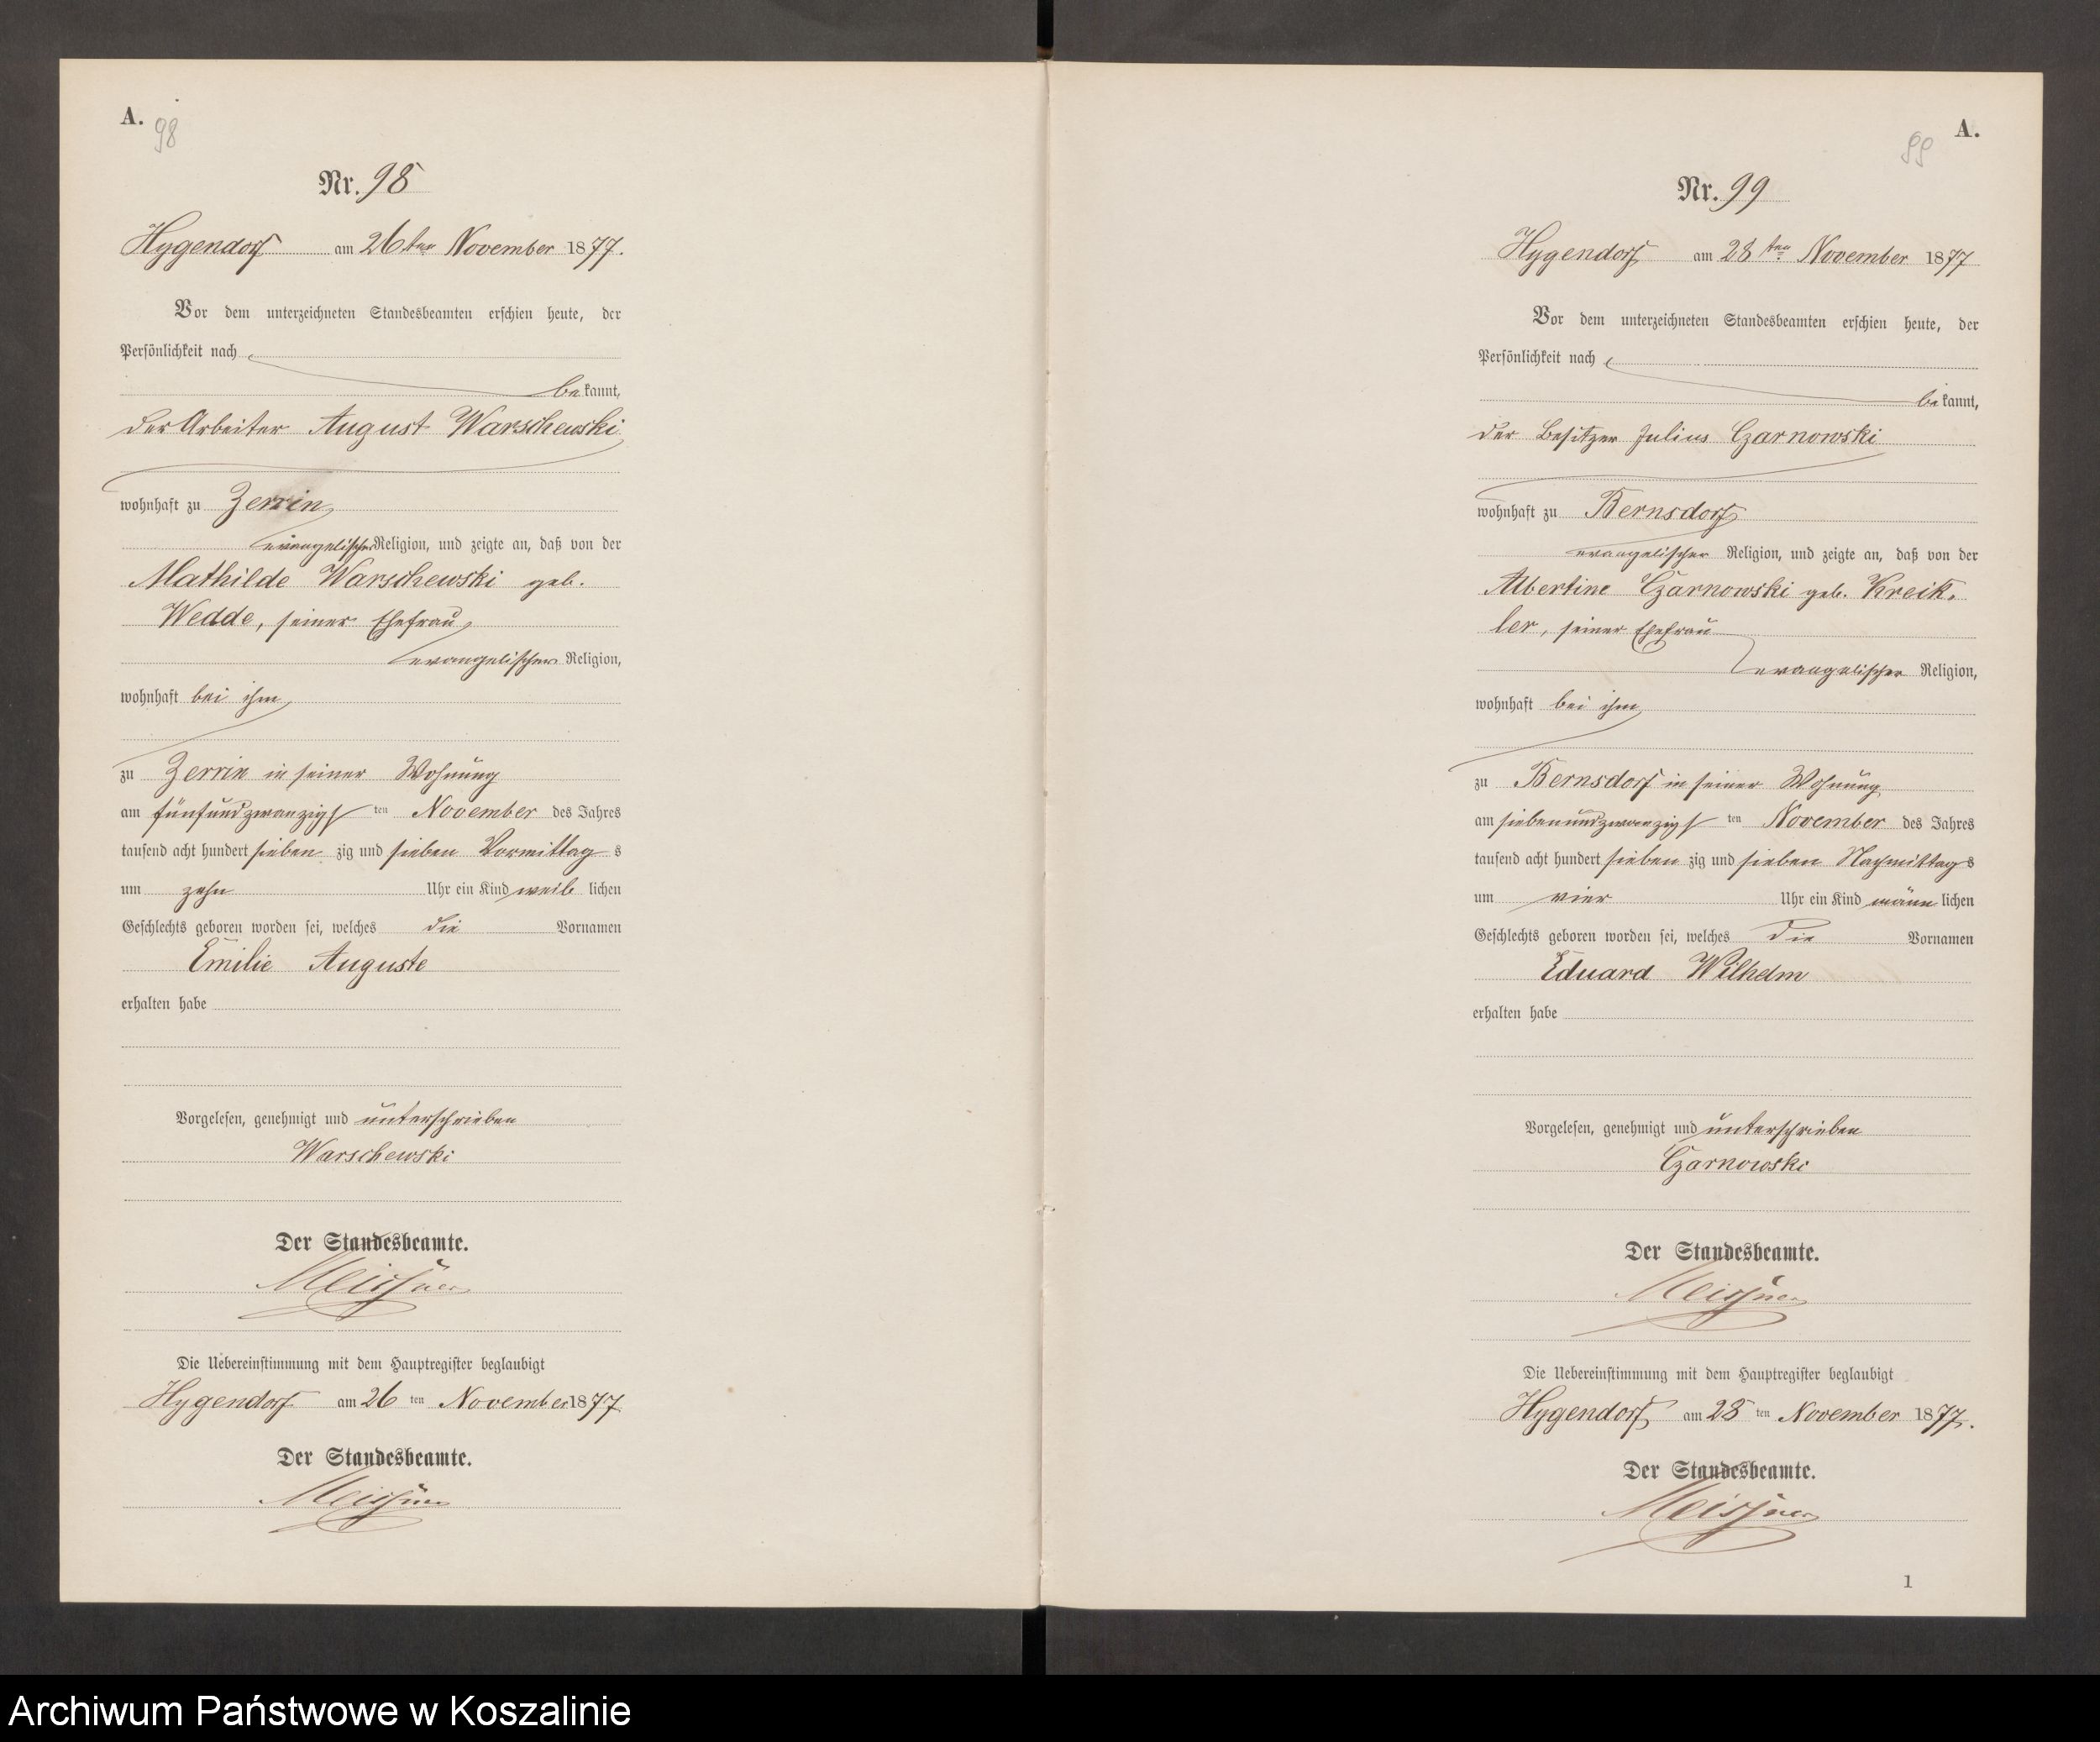 A.
98
Nr. 98
Hygendorf am 26ten November 1877.
Vor dem unterzeichneten Standesbeamten erschien heute, der
Persönlichkeit nach
bekannt,
der Arbeiter August Warschewski
wohnhaft zu Zerrin
evangelischer Religion, und zeigte an, daß von der
Mathilde Warschewski geb.
Wedde, seiner Ehefrau
evangelischer Religion,
wohnhaft bei ihm
zu Zerrin in seiner Wohnung
am fünfundzwanzigsten November des Jahres
tausend acht hundert siebenzig und sieben Vormittags
um zehn Uhr ein Kind weiblichen
Geschlechts geboren worden sei, welches die Vornamen
Emilie Auguste
erhalten habe
Vorgelesen, genehmigt und unterschrieben
Warschewski
Der Standesbeamte.
Meissner
Die Uebereinstimmung mit dem Hauptregister beglaubigt
Hygendorf am 26 ten November 1877
Der Standesbeamte.
Meissner
A.
99
Nr. 99
Hygendorf am 28ten November 1877
Vor dem unterzeichneten Standesbeamten erschien heute, der
Persönlichkeit nach
bekannt,
der Besitzer Julius Czarnowski
wohnhaft zu Bernsdorf
evangelischer Religion, und zeigte an, daß von der
Albertine Czarnowski geb. Kreik-
ler, seiner Ehefrau
evangelischer Religion,
wohnhaft bei ihm
zu Bernsdorf in seiner Wohnung
am siebenundzwanzigsten November des Jahres
tausend acht hundert siebenzig und sieben Nachmittags
um vier Uhr ein Kind männlichen
Geschlechts geboren worden sei, welches die Vornamen
Eduard Wilhelm
erhalten habe
Vorgelesen, genehmigt und unterschrieben
Czarnowski
Der Standesbeamte.
Meissner
Die Uebereinstimmung mit dem Hauptregister beglaubigt
Hygendorf am 28 ten November 1877.
Der Standesbeamte.
Meissner
1
Archiwum Państwowe w Koszalinie